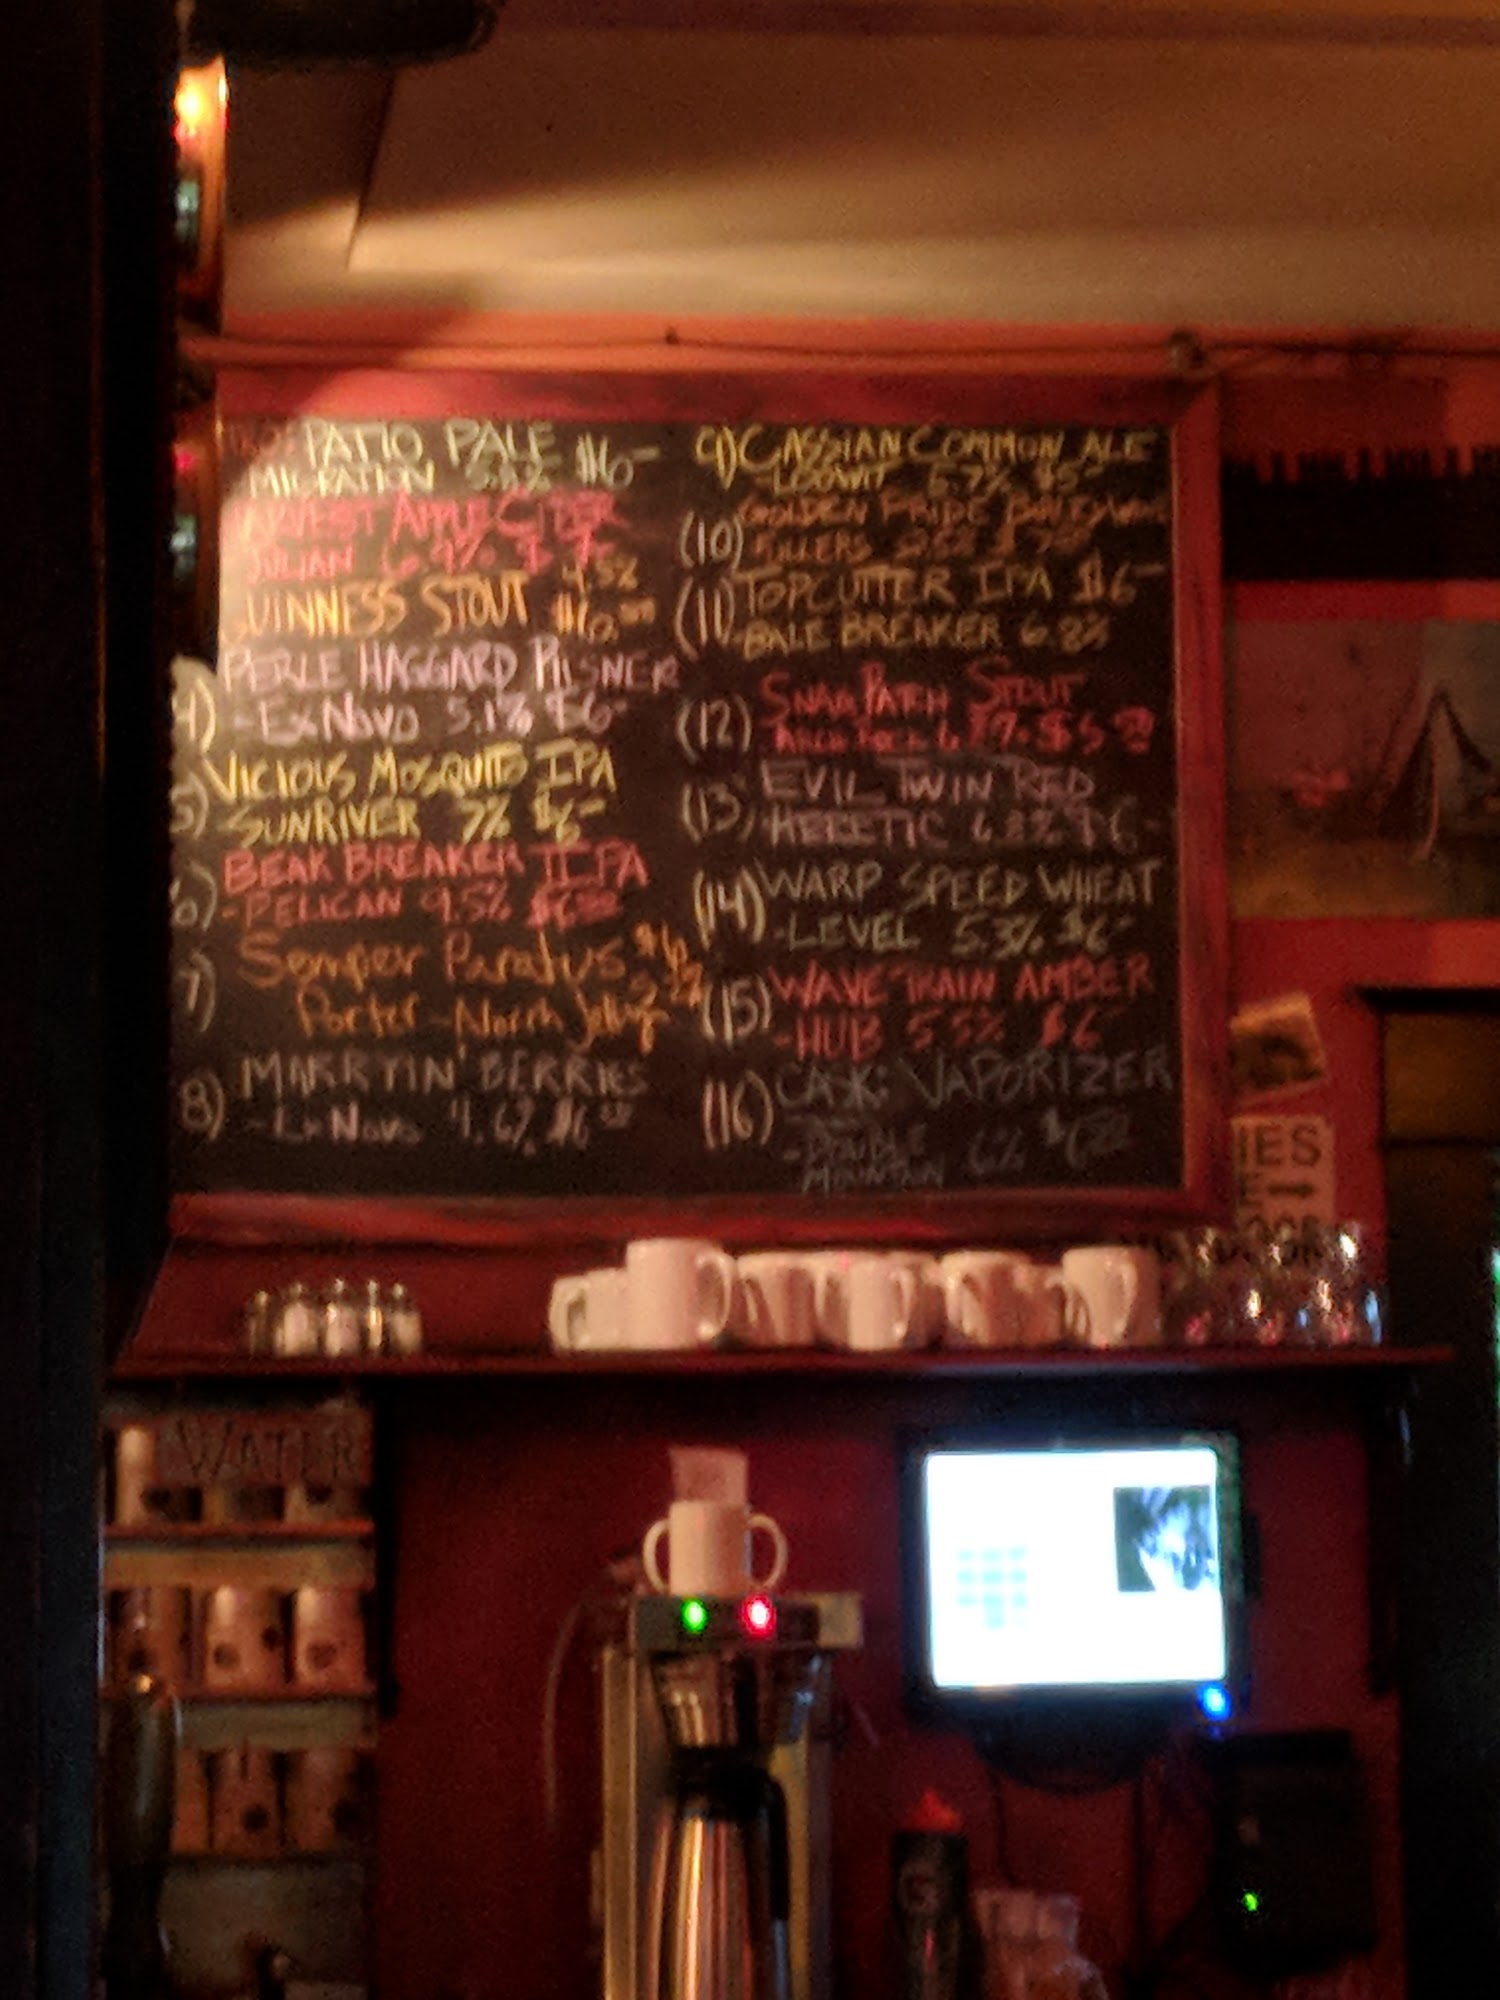 PATIO PALE $6-
MIGRATION 5.8%
HARVEST APPLE CIDER
JULIAN 6.9% $7
GUINNESS STOUT 4.5%
$6.00
4) PERLE HAGGARD PILSNER
-Ex Novo 5.1% $6-
5) VICIOUS MOSQUITO IPA
SUNRIVER 7% $6-
6) BEAK BREAKER IIPA
-PELICAN 9.5% $6.00
7) Semper Paratus $6
Porter - North Jetty
8) MARRYIN' BERRIES
-Ex Novo 4.6% $6.00
9) CASSIAN COMMON ALE
-LOOWIT 5.7% $5-
(10) GOLDEN PRIDE BARLEYWINE
FULLERS
(11) TOPCUTTER IPA $6-
-BALE BREAKER 6.8%
(12) SNAG PATCH STOUT
(13) EVIL TWIN RED
-HERETIC 6.8% $6-
(14) WARP SPEED WHEAT
-LEVEL 5.3% $6-
(15) WAVE TRAIN AMBER
-HUB 5.5% $6
(16) CASK: VAPORIZER
-DOUBLE 6% $6.00
MOUNTAIN
WATER